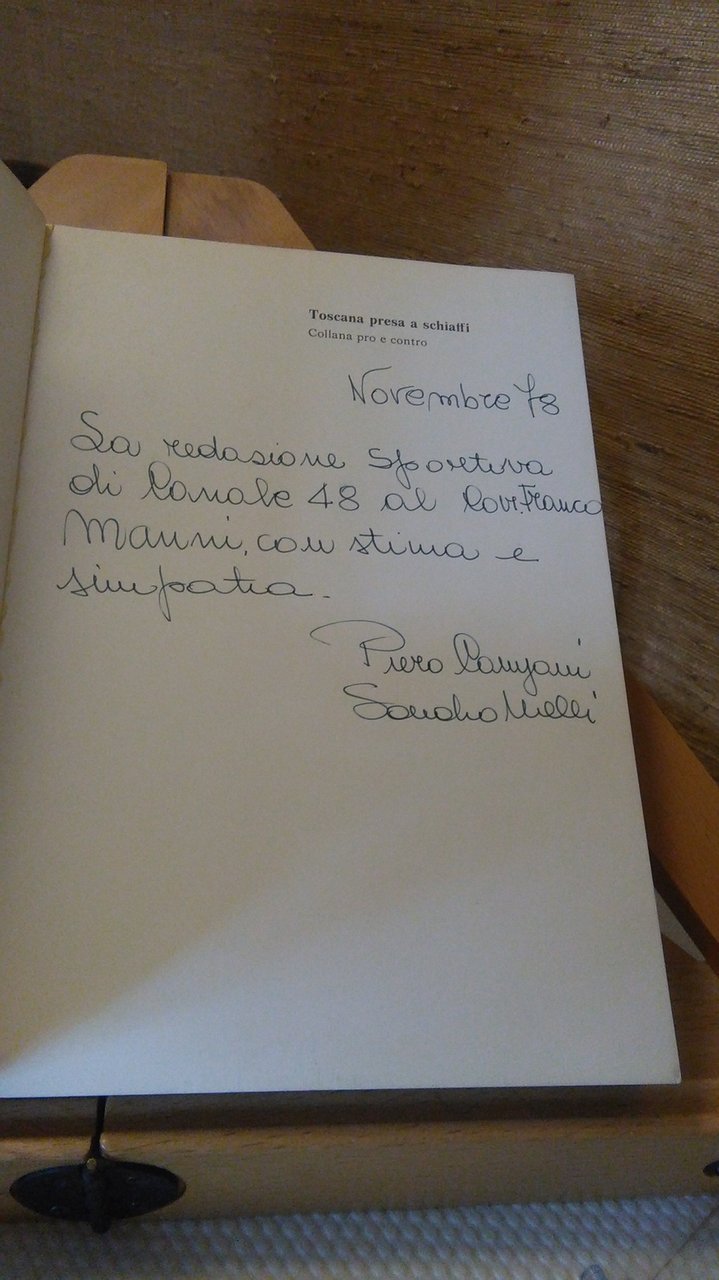 Toscana presa a schiaffi
Collana pro e contro
Novembre 78
La redazione sportiva
di Canale 48 al Cav. Franco
Manni, con stima e
simpatia.
Piero
Sandro Melli